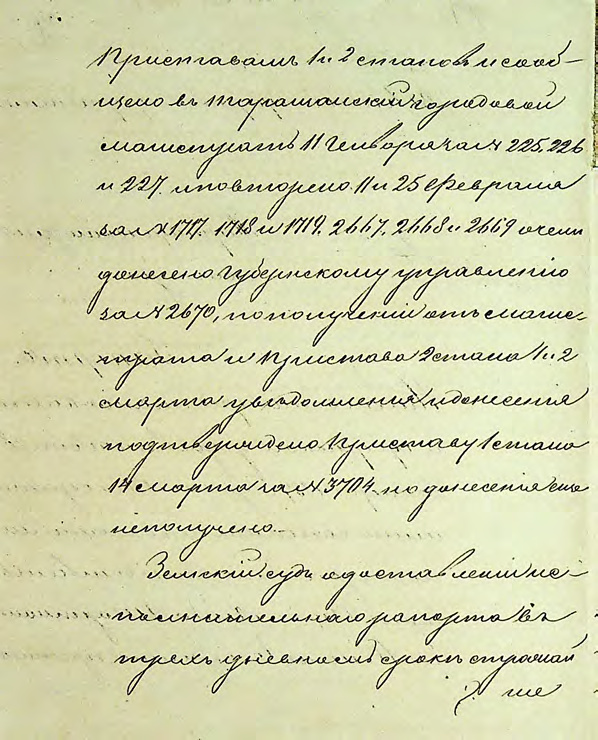 Приставамъ 1 и 2 становъ и сооб-
щено въ Таращанскій городовой
магистратъ 11 Генваря за № 225, 226
и 227. и повторено 11 и 25 Февраля
за № 1717. 1718 и 1719. 2667. 2668 и 2669 о чемъ
донесено Губернскому управленію
за № 2670, по полученіи отъ магис-
трата и Пристава 2 стана 1 и 2
марта увѣдомленія и донесенія
подтверждено Приставу 1 стана
14 марта за № 3704. но донесенія еще
неполучено.
Земскій судъ о доставленіи ис-
полнительнаго рапорта въ
трехъ дневномъ срокѣ строжай
ше